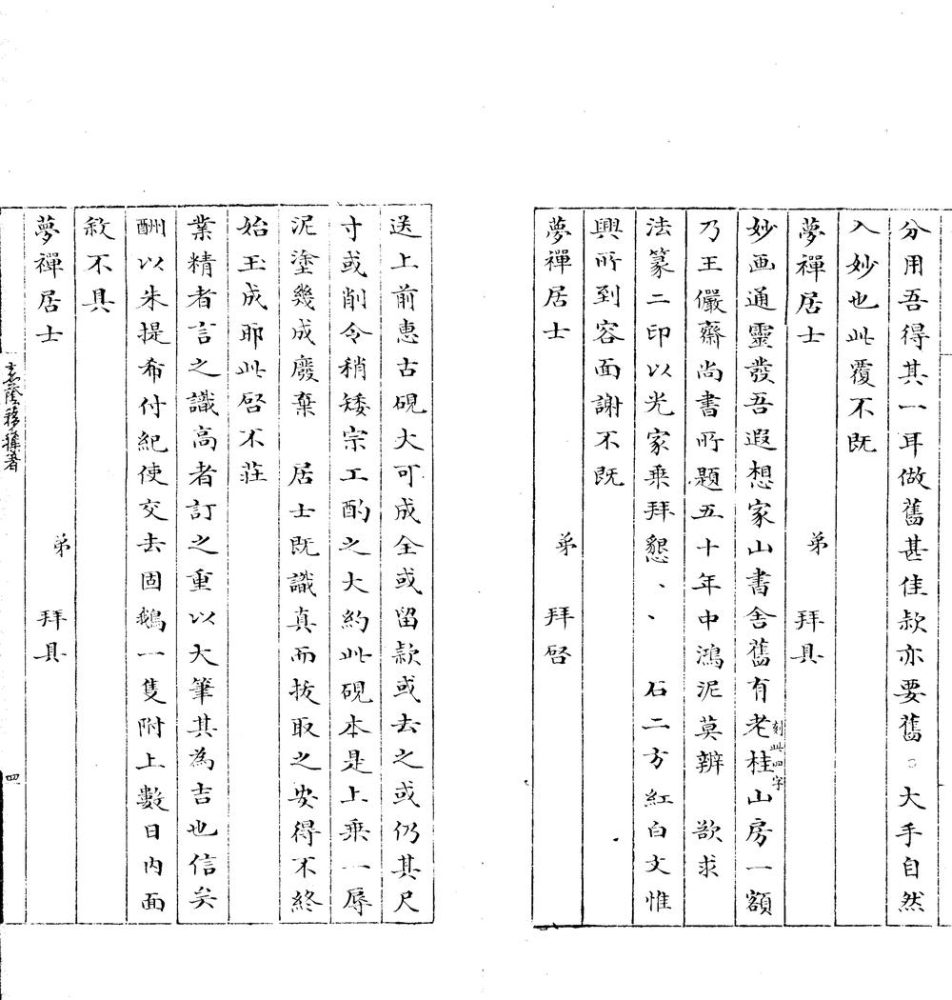 分用吾得其一耳做舊甚佳款亦要舊。大手自然
入妙也此覆不既
夢禪居士 弟 拜具
妙画通靈發吾遐想家山書舍舊有老桂山房一額
刻此四字
乃王儼齋尚書所題五十年中鴻泥莫辨 欲求
法篆二印以光家乘拜懇、、 石二方紅白文惟
興所到容面謝不既
夢禪居士 弟 拜啓
送上前惠古硯大可成全或留款或去之或仍其尺
寸或削令稍矮宗工酌之大約此硯本是上乘一辱
泥塗幾成廢棄 居士既識真而拔取之安得不終
始玉成耶此啓不莊
業精者言之識高者訂之重以大筆其為吉也信矣
酬以朱提希付紀使交去固鵝一隻附上數日內面
敘不具
夢禪居士 弟 拜具
四